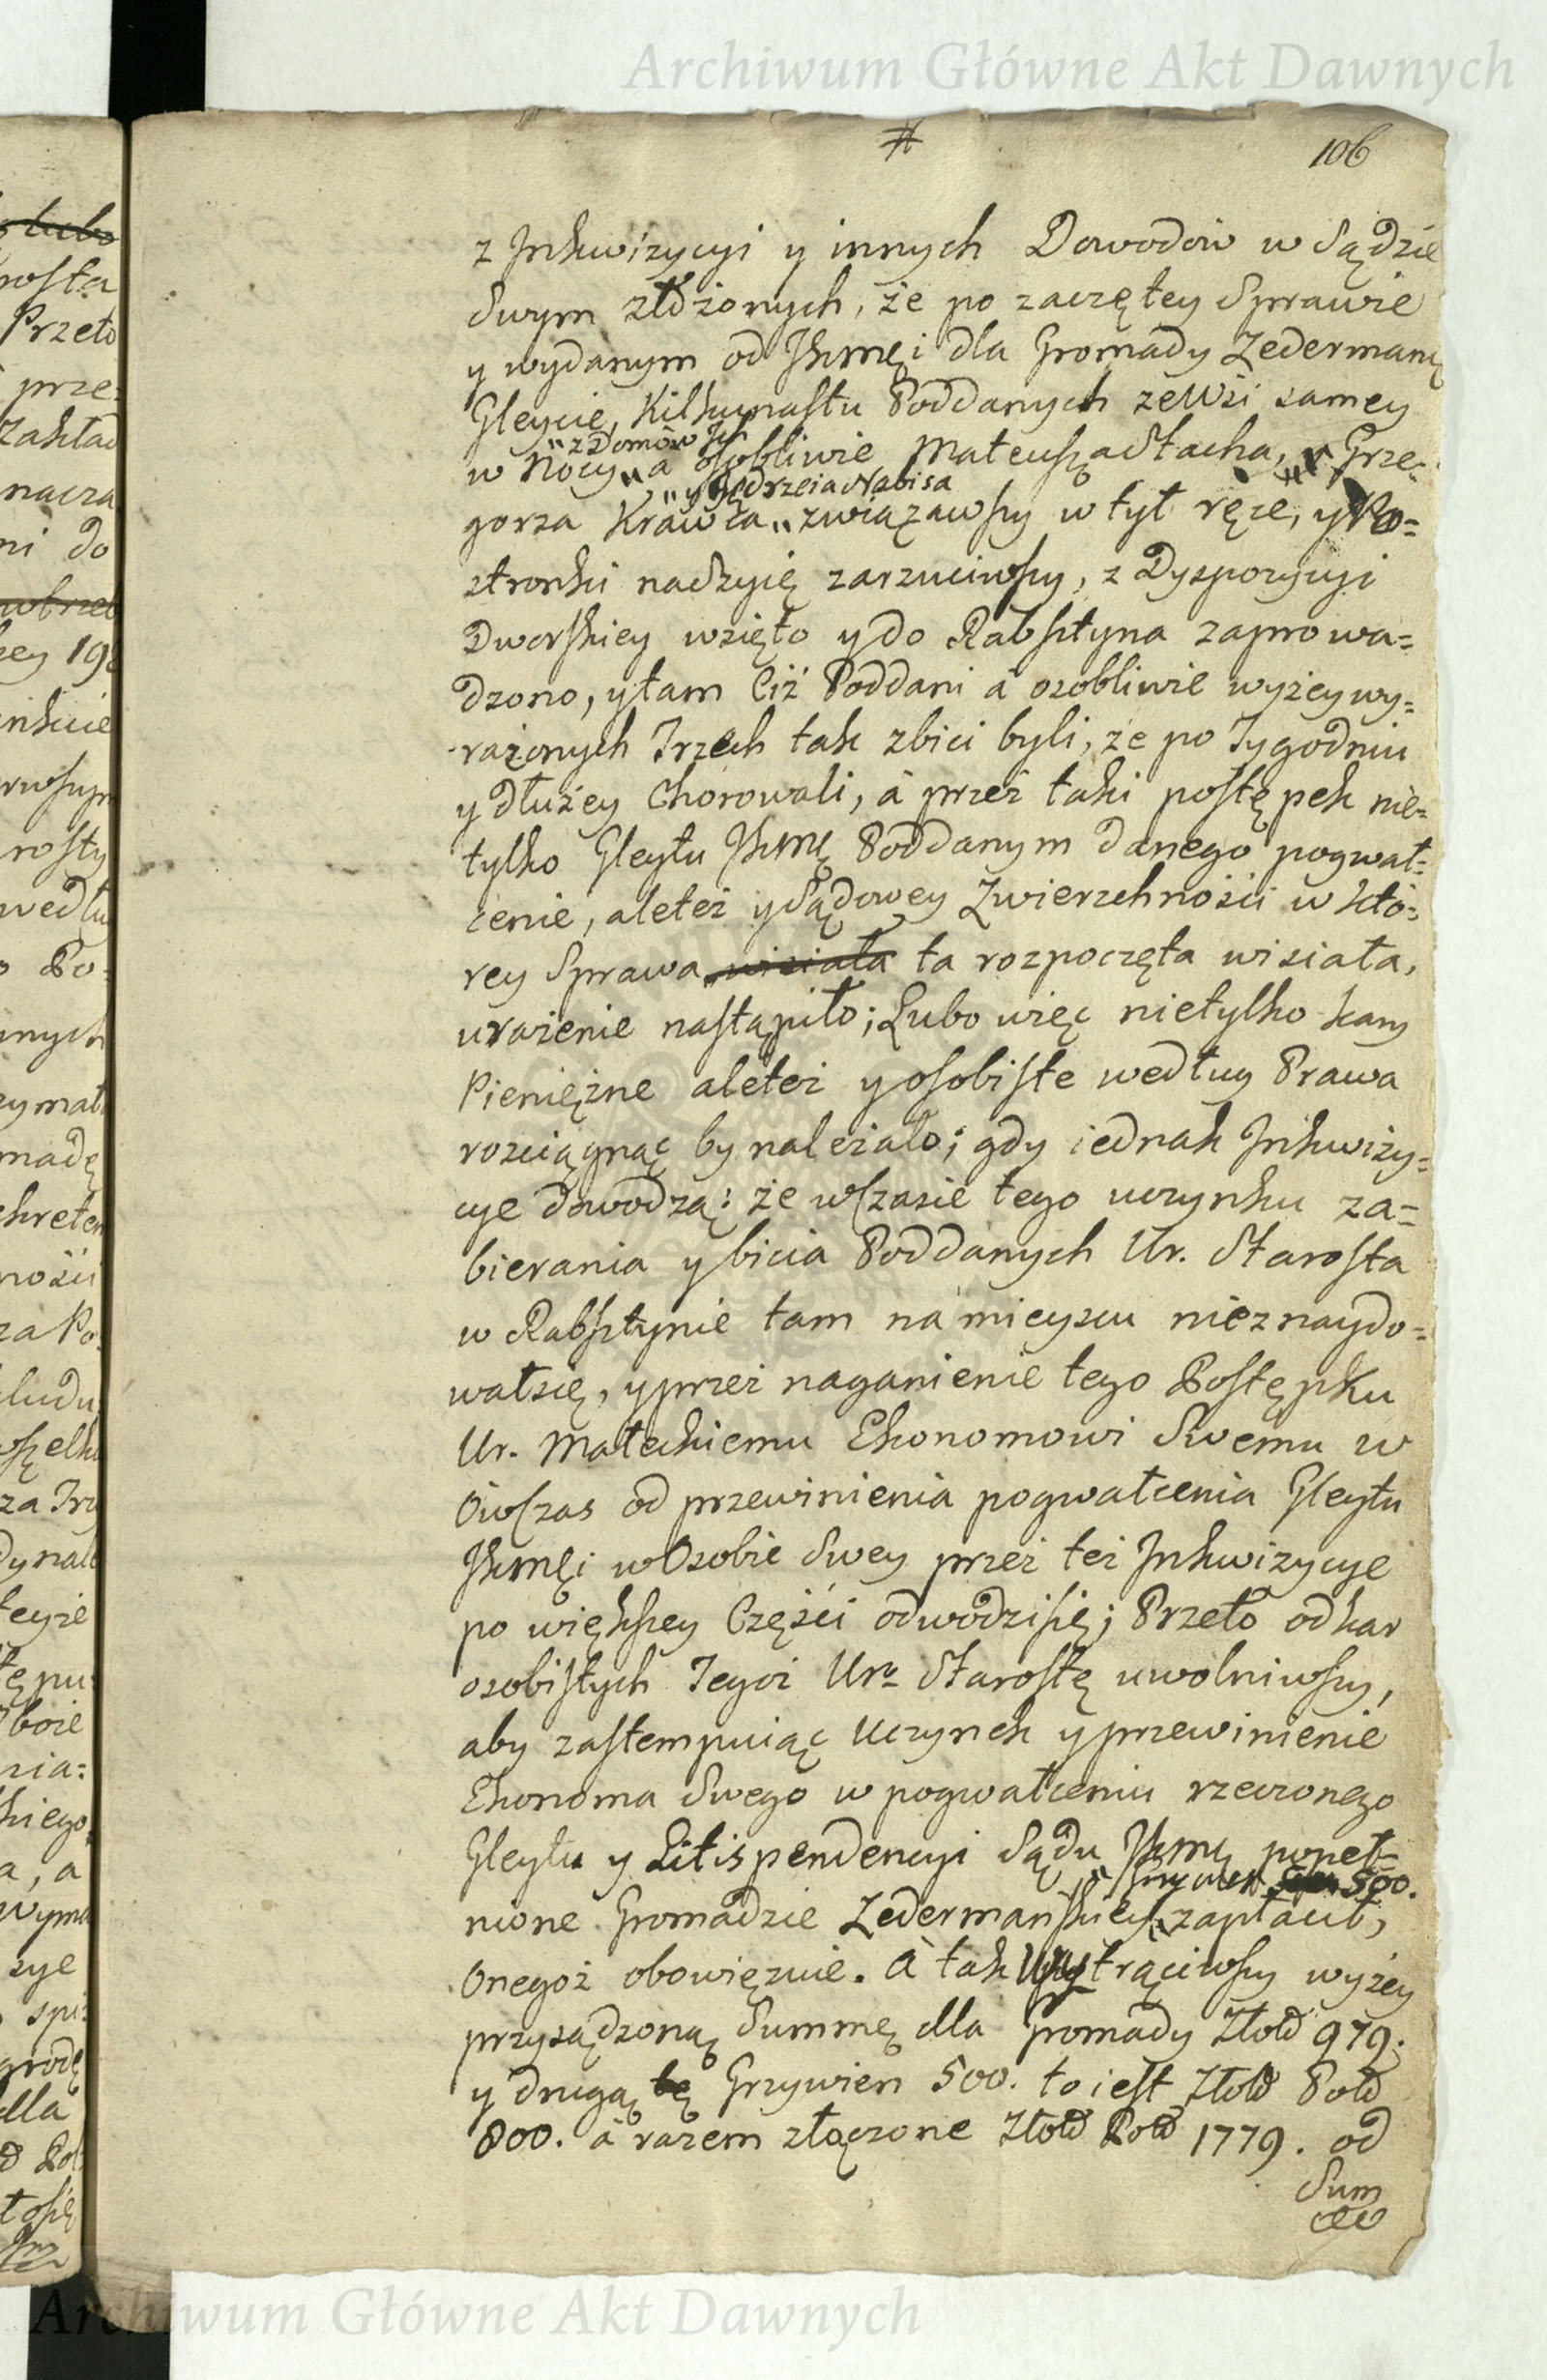 Archiwum Główne Akt Dawnych
#
106
z Inkwizycyi y innych Dowodów w Sądzie
Swym złożonych, że po zaczętey Sprawie
y wydanym od JKmci dla Gromady Zedermany
Gleycie, Kilkunastu Poddanych ze Wsi samey
„z Domów Ich
w Nocy „ a osobliwie Mateusza Stacha, „ Grze-
„y Jędrzeia Nabisa
gorza Krawca „ związawszy w tył ręce, y Po=
stronki na Szyię zarzuciwszy, z Dyspozycyi
Dworskiey wzięto y do Rabsztyna zaprowa=
dzono, y tam Ciż Poddani a osobliwie wyżey wy=
rażonych Trzech tak zbici byli, że po Tygodniu
y dłużey Chorowali, a przez taki postępek nie=
tylko Gleytu JKmc Poddanym danego pogwał=
cenie, ale też y Sądowey Zwierzchności w któ=
rey Sprawa wisiała ta rozpoczęta wisiała,
urażenie nastąpiło; Lubo więc nietylko kary
Pieniężne ale też y osobiste według Prawa
rozciągnąć by należało; gdy iednak Inkwizy=
cye dowodzą: że w czasie tego uczynku za=
bierania y bicia Poddanych Ur. Starosta
w Rabsztynie tam na mieyscu nieznaydo=
wał się, y przez naganienie tego Postępku
Ur. Małeckiemu Ekonomowi Swemu w
Ówczas od przewinienia pogwałcenia Gleytu
JKmci w Osobie Swey przez też Inkwizycye
po większey Części odwodzi się; Przeto od kar
osobistych Tegoż Ur. Starostę uwolniwszy,
aby zastempuiąc Uczynek y przewinienie
Ekonoma Swego w pogwałceniu rzeczonego
Gleytu y Litispendencyi Sądu JKmc popeł=
„Grzywien 500.
nione Gromadzie Zedermańskiey „ zapłacił,
Onegoż obowięzuie. A tak wytrąciwszy wyżey
przysądzoną Summę dla Gromady Złotd 979.
y drugą tę Grzywien 500. to iest Złotd Pold
800. a razem złączone Złotd Pold 1779. od
Sum
Archiwum Główne Akt Dawnych